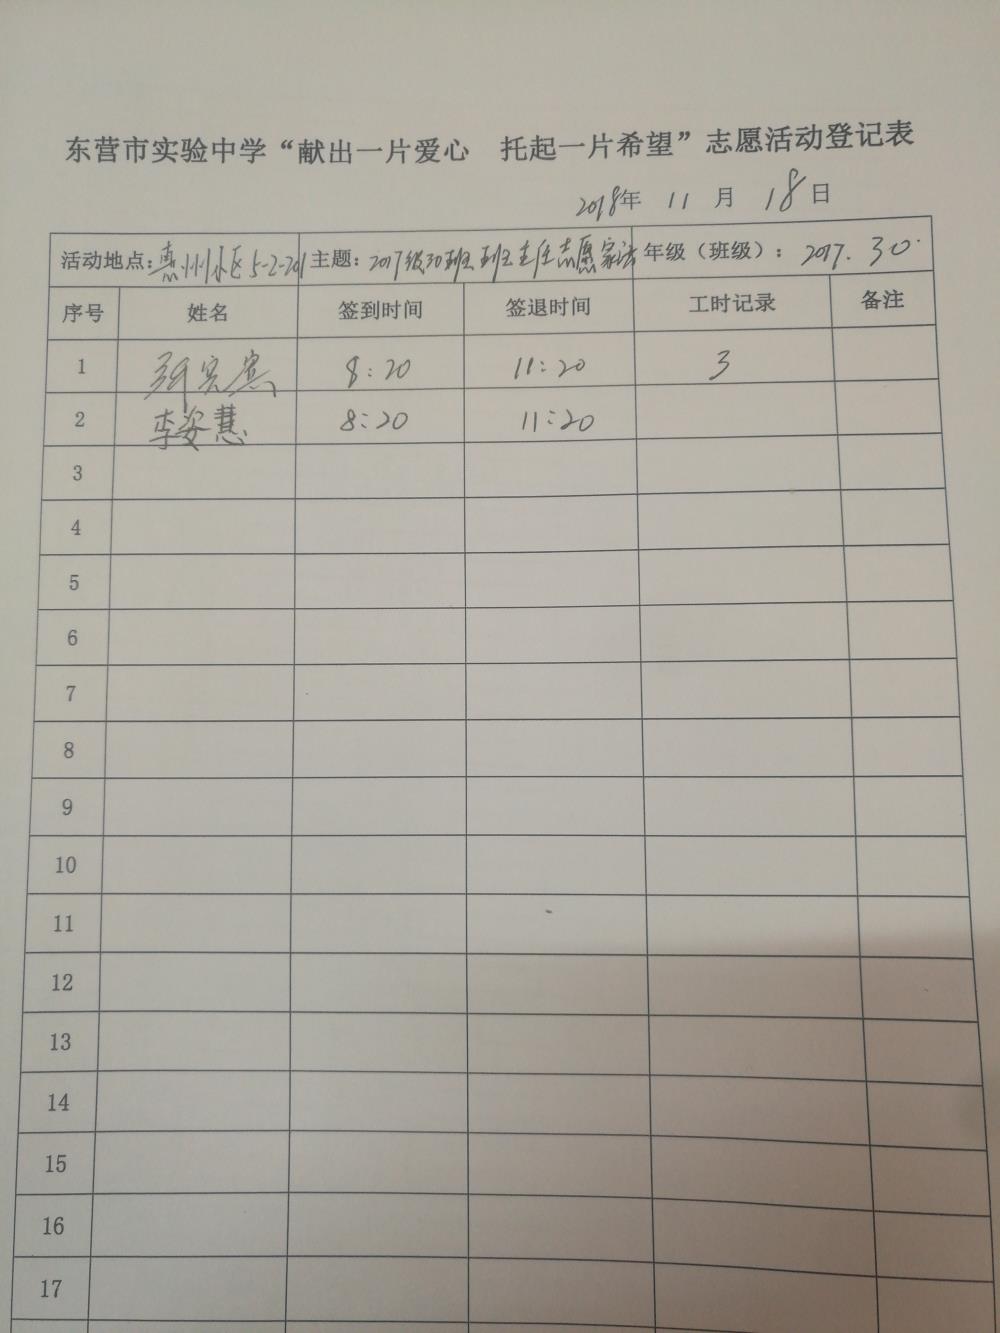 东营市实验中学“献出一片爱心 托起一片希望”志愿活动登记表
2018年 11 月 18日
活动地点:惠州小区5-2-201 主题:2017级30班班主任志愿家访 年级(班级):2017.30.
序号 姓名 签到时间 签退时间 工时记录 备注
1 8:20 11:20 3
2 李姿慧 8:20 11:20
3
4
5
6
7
8
9
10
11
12
13
14
15
16
17